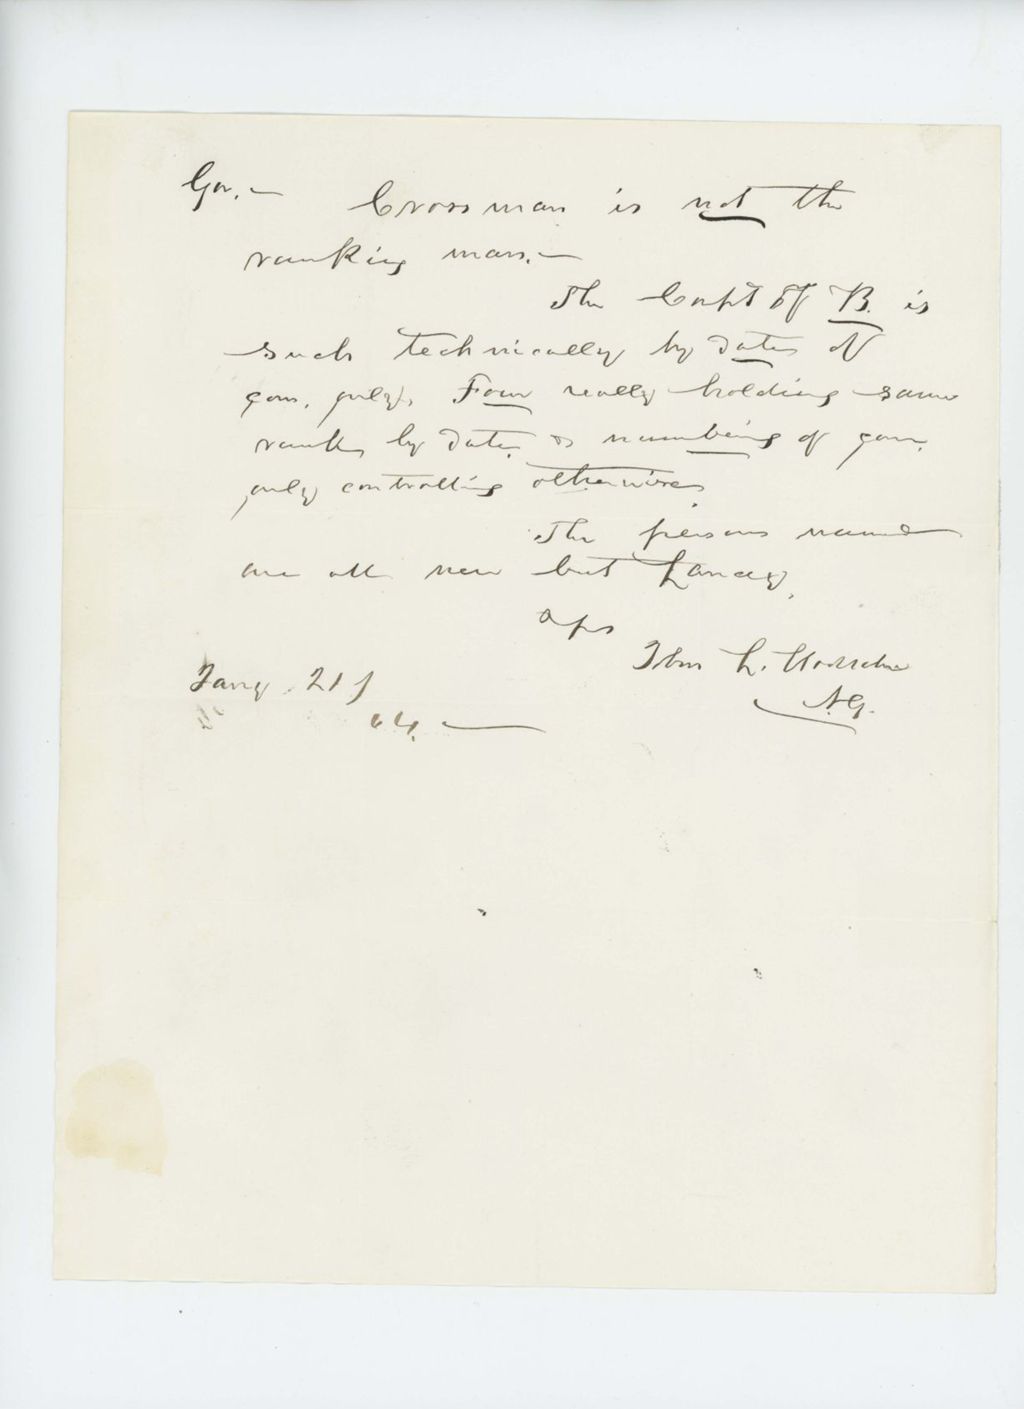 Gov. —
Crossman is not the
ranking man. —
The Capt of B. is
such technically by date of
com. only. Four really holding same
rank, by date, & numbering of com.
only controlling otherwise.
The persons named
are all new but Lancey.
Jno L. Hodsdon
A.G.
Jany 21
64. —